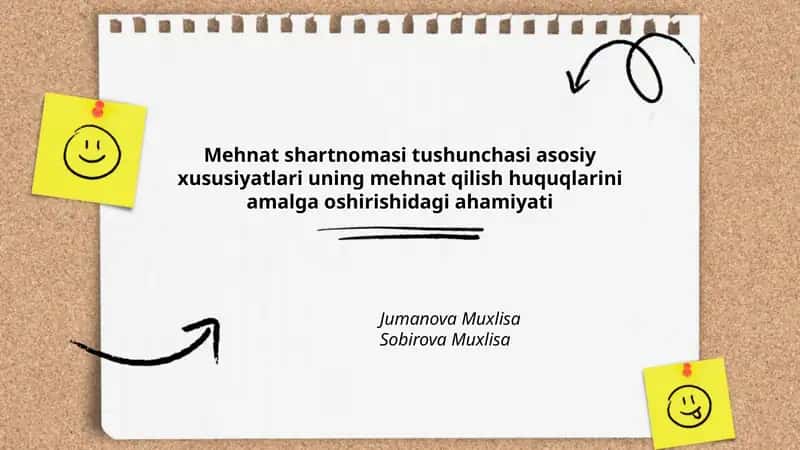 Mehnat shartnomasi tushunchasi asosiy
xususiyatlari uning mehnat qilish huquqlarini
amalga oshirishidagi ahamiyati
Jumanova Muxlisa
Sobirova Muxlisa